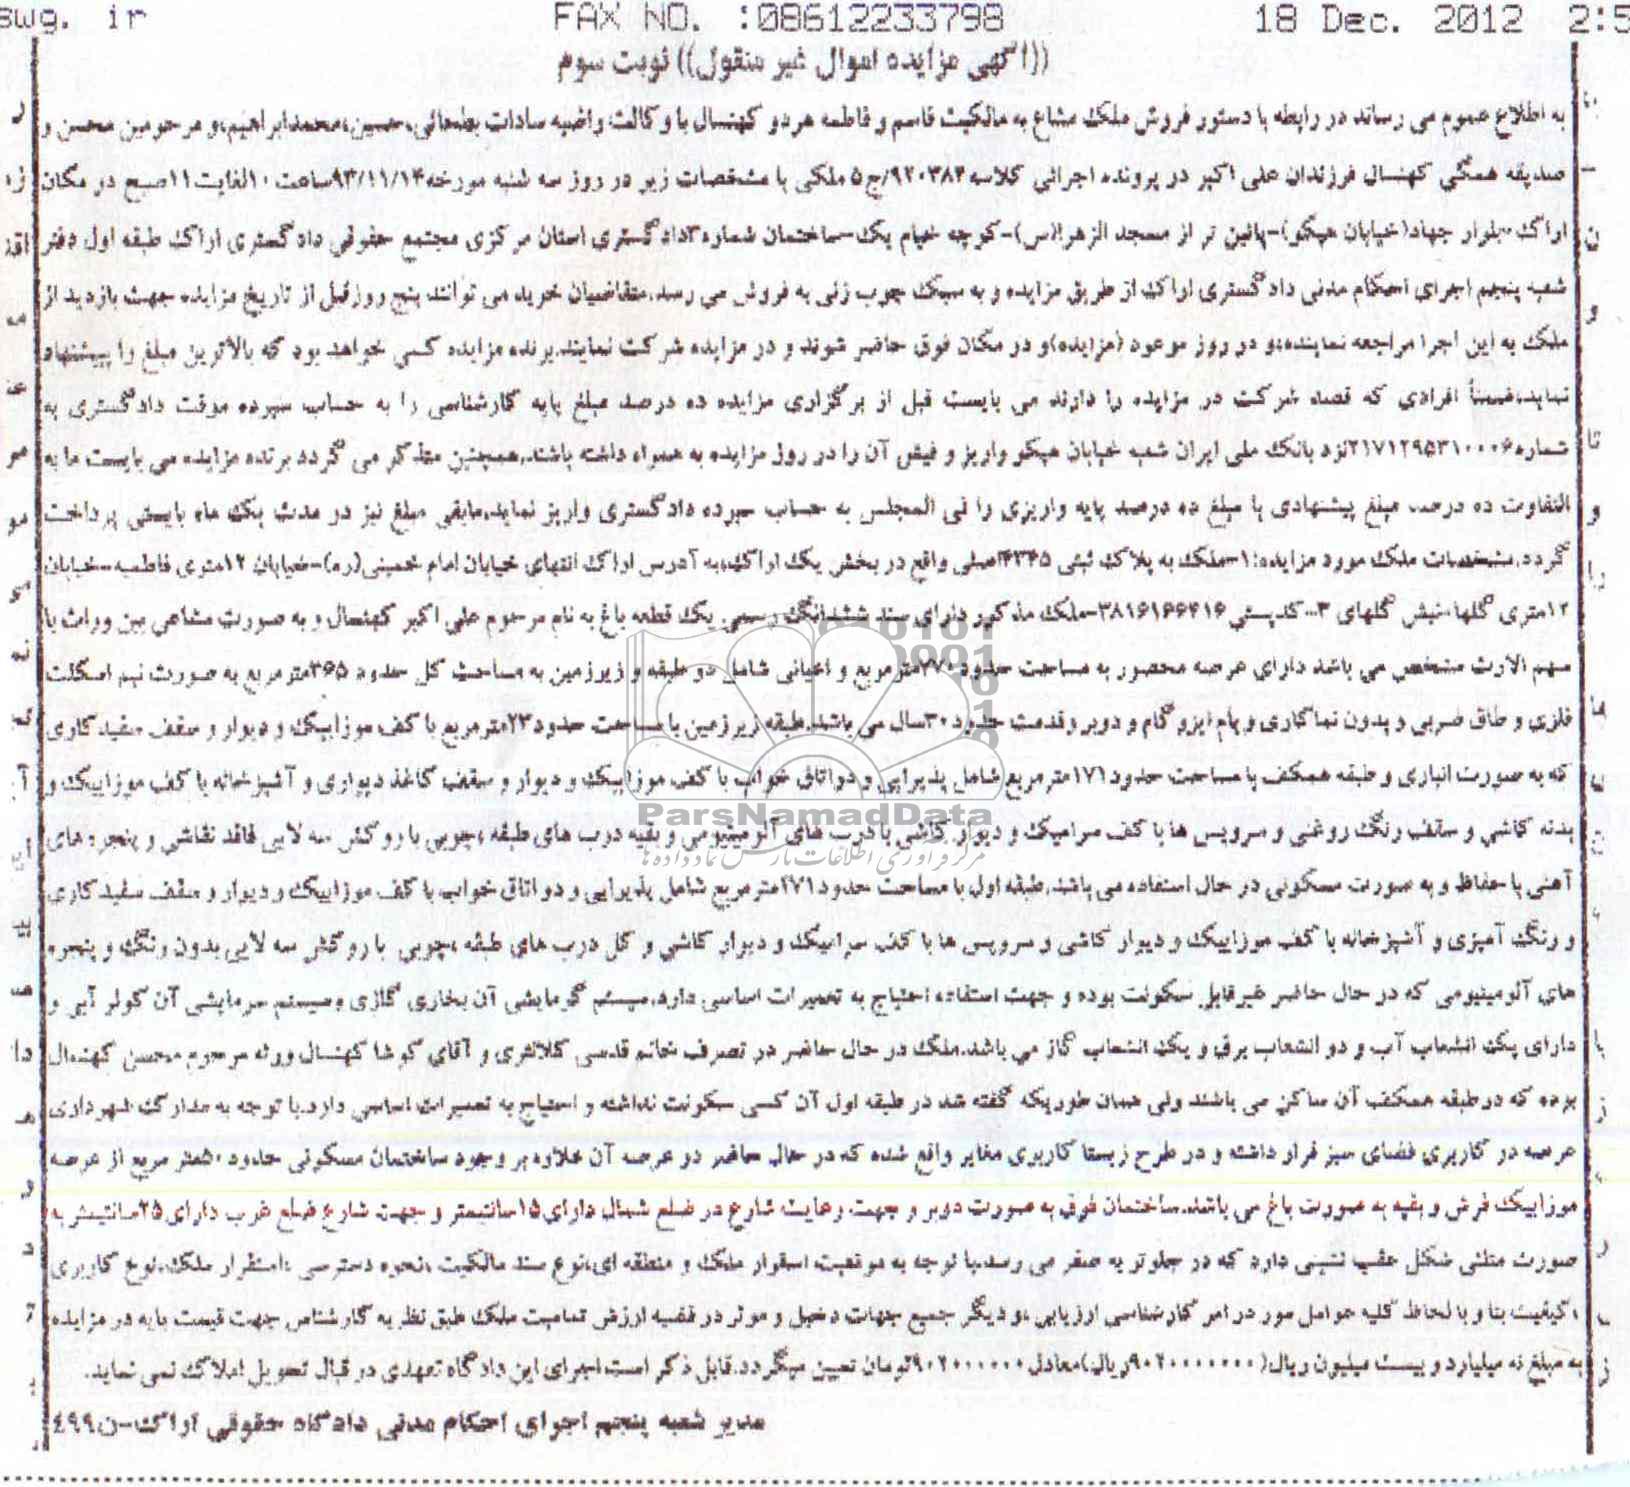 swg. ir FAX NO. :08612233798 18 Dec. 2012 2:5
((آگهی مزایده اموال غیر منقول)) نوبت سوم
به اطلاع عموم می رساند در رابطه با دستور فروش ملک مشاع به مالکیت قاسم و فاطمه هردو کهنسال با وکالت راضیه سادات بطحائی،حسین،محمدابراهیم،و مرحومین محسن و
صدیقه همگی کهنسال فرزندان علی اکبر در پرونده اجرائی کلاسه ۹۲۰۳۸۲/ج۵ ملکی با مشخصات زیر در روز سه شنبه مورخه۹۳/۱۱/۱۴ساعت ۱۰لغایت۱۱صبح در مکان
اراک-بلوار جهاد(خیابان هپکو)-پائین تر از مسجد الزهرا(س)-کوچه خیام یک-ساختمان شماره۳دادگستری استان مرکزی مجتمع حقوقی دادگستری اراک طبقه اول دفتر
شعبه پنجم اجرای احکام مدنی دادگستری اراک از طریق مزایده و به سبک چوب زنی به فروش می رسد.متقاضیان خرید می توانند پنج روزقبل از تاریخ مزایده جهت بازدید از
ملک به این اجرا مراجعه نمایند،و در روز موعود (مزایده)و در مکان فوق حاضر شوند و در مزایده شرکت نمایند.برنده مزایده کسی خواهد بود که بالاترین مبلغ را پیشنهاد
نماید.ضمناً افرادی که قصد شرکت در مزایده را دارند می بایست قبل از برگزاری مزایده ده درصد مبلغ پایه کارشناسی را به حساب سپرده موقت دادگستری به
شماره۲۱۷۱۲۹۵۳۱۰۰۰۶نزد بانک ملی ایران شعبه خیابان هپکو واریز و فیش آن را در روز مزایده به همراه داشته باشند.همچنین متذکر می گردد برنده مزایده می بایست ما به
التفاوت ده درصد مبلغ پیشنهادی با مبلغ ده درصد پایه واریزی را فی المجلس به حساب سپرده دادگستری واریز نماید.مابقی مبلغ نیز در مدت یک ماه بایستی پرداخت
گردد.مشخصات ملک مورد مزایده:۱-ملک به پلاک ثبتی ۴۳۴۵اصلی واقع در بخش یک اراک،به آدرس اراک انتهای خیابان امام خمینی(ره)-خیابان ۱۲متری فاطمیه-خیابان
۱۲متری گلها-نبش گلهای ۳-کدپستی ۳۸۱۶۱۶۶۴۱۶-ملک مذکور دارای سند ششدانگ رسمی یک قطعه باغ به نام مرحوم علی اکبر کهنسال و به صورت مشاعی بین وراث با
سهم الارث مشخص می باشد دارای عرصه محصور به مساحت حدود ۷۷۰مترمربع و اعیانی شامل دو طبقه و زیرزمین به مساحت کل حدود ۳۶۵مترمربع به صورت نیم اسکلت
فلزی و طاق ضربی و بدون نماکاری و بام ایزوگام و دوبر وقدمت حدود۳۰سال می باشد.طبقه زیرزمین با مساحت حدود۲۳مترمربع با کف موزاییک و دیوار و سقف سفیدکاری
که به صورت انباری و طبقه همکف با مساحت حدود۱۷۱مترمربع شامل پذیرایی و دواتاق خواب با کف موزاییک و دیوار و سقف کاغذ دیواری و آشپزخانه با کف موزاییک و
بدنه کاشی و سقف رنگ روغنی و سرویس ها با کف سرامیک و دیوار کاشی با درب های آلومینیومی و بقیه درب های طبقه ،چوبی با روکش سه لایی فاقد نقاشی و پنجره های
آهنی با حفاظ و به صورت مسکونی در حال استفاده می باشد.طبقه اول با مساحت حدود۱۷۱مترمربع شامل پذیرایی و دو اتاق خواب با کف موزاییک و دیوار و سقف سفیدکاری
و رنگ آمیزی و آشپزخانه با کف موزاییک و دیوار کاشی و سرویس ها با کف سرامیک و دیوار کاشی و کل درب های طبقه ،چوبی با روکش سه لایی بدون رنگ و پنجره
های آلومینیومی که در حال حاضر غیرقابل سکونت بوده و جهت استفاده احتیاج به تعمیرات اساسی دارد.سیستم گرمایشی آن بخاری گازی وسیستم سرمایشی آن کولر آبی و
دارای یک انشعاب آب و دو انشعاب برق و یک انشعاب گاز می باشد.ملک در حال حاضر در تصرف خانم قدسی کلانتری و آقای کوشا کهنسال ورثه مرحوم محسن کهنسال
بوده که در طبقه همکف آن ساکن می باشند ولی همان طوریکه گفته شد در طبقه اول آن کسی سکونت نداشته و احتیاج به تعمیرات اساسی دارد.با توجه به مدارک شهرداری
عرصه در کاربری فضای سبز قرار داشته و در طرح زیستا کاربری مغایر واقع شده که در حال حاضر در عرصه آن علاوه بر وجود ساختمان مسکونی حدود ۵۰متر مربع از عرصه
موزاییک فرش و بقیه به صورت باغ می باشد.ساختمان فوق به صورت دوبر و جهت رعایت شارع در ضلع شمال دارای۱۵سانتیمتر و جهت شارع ضلع غرب دارای۲۵سانتیمتر به
صورت مثلثی شکل عقب نشینی دارد که در جلوتر به صفر می رسد.با توجه به موقعیت استقرار ملک و منطقه ای،نوع سند مالکیت ،نحوه دسترسی ،استقرار ملک،نوع کاربری
،کیفیت بنا و با لحاظ کلیه عوامل موثر در امر کارشناسی ارزیابی ،و دیگر جمیع جهات دخیل و موثر در قضیه ارزش تمامیت ملک طبق نظریه کارشناس جهت قیمت پایه در مزایده
به مبلغ نه میلیارد و بیست میلیون ریال(۹۰۲۰۰۰۰۰۰۰ریال)معادل۹۰۲۰۰۰۰۰۰تومان تعیین میگردد.قابل ذکر است اجرای این دادگاه تعهدی در قبال تحویل املاک نمی نماید.
مدیر شعبه پنجم اجرای احکام مدنی دادگاه حقوقی اراک-ن۴۹۹
ParsNamadData
مرکز فرآوری اطلاعات پارس نماد داده ها